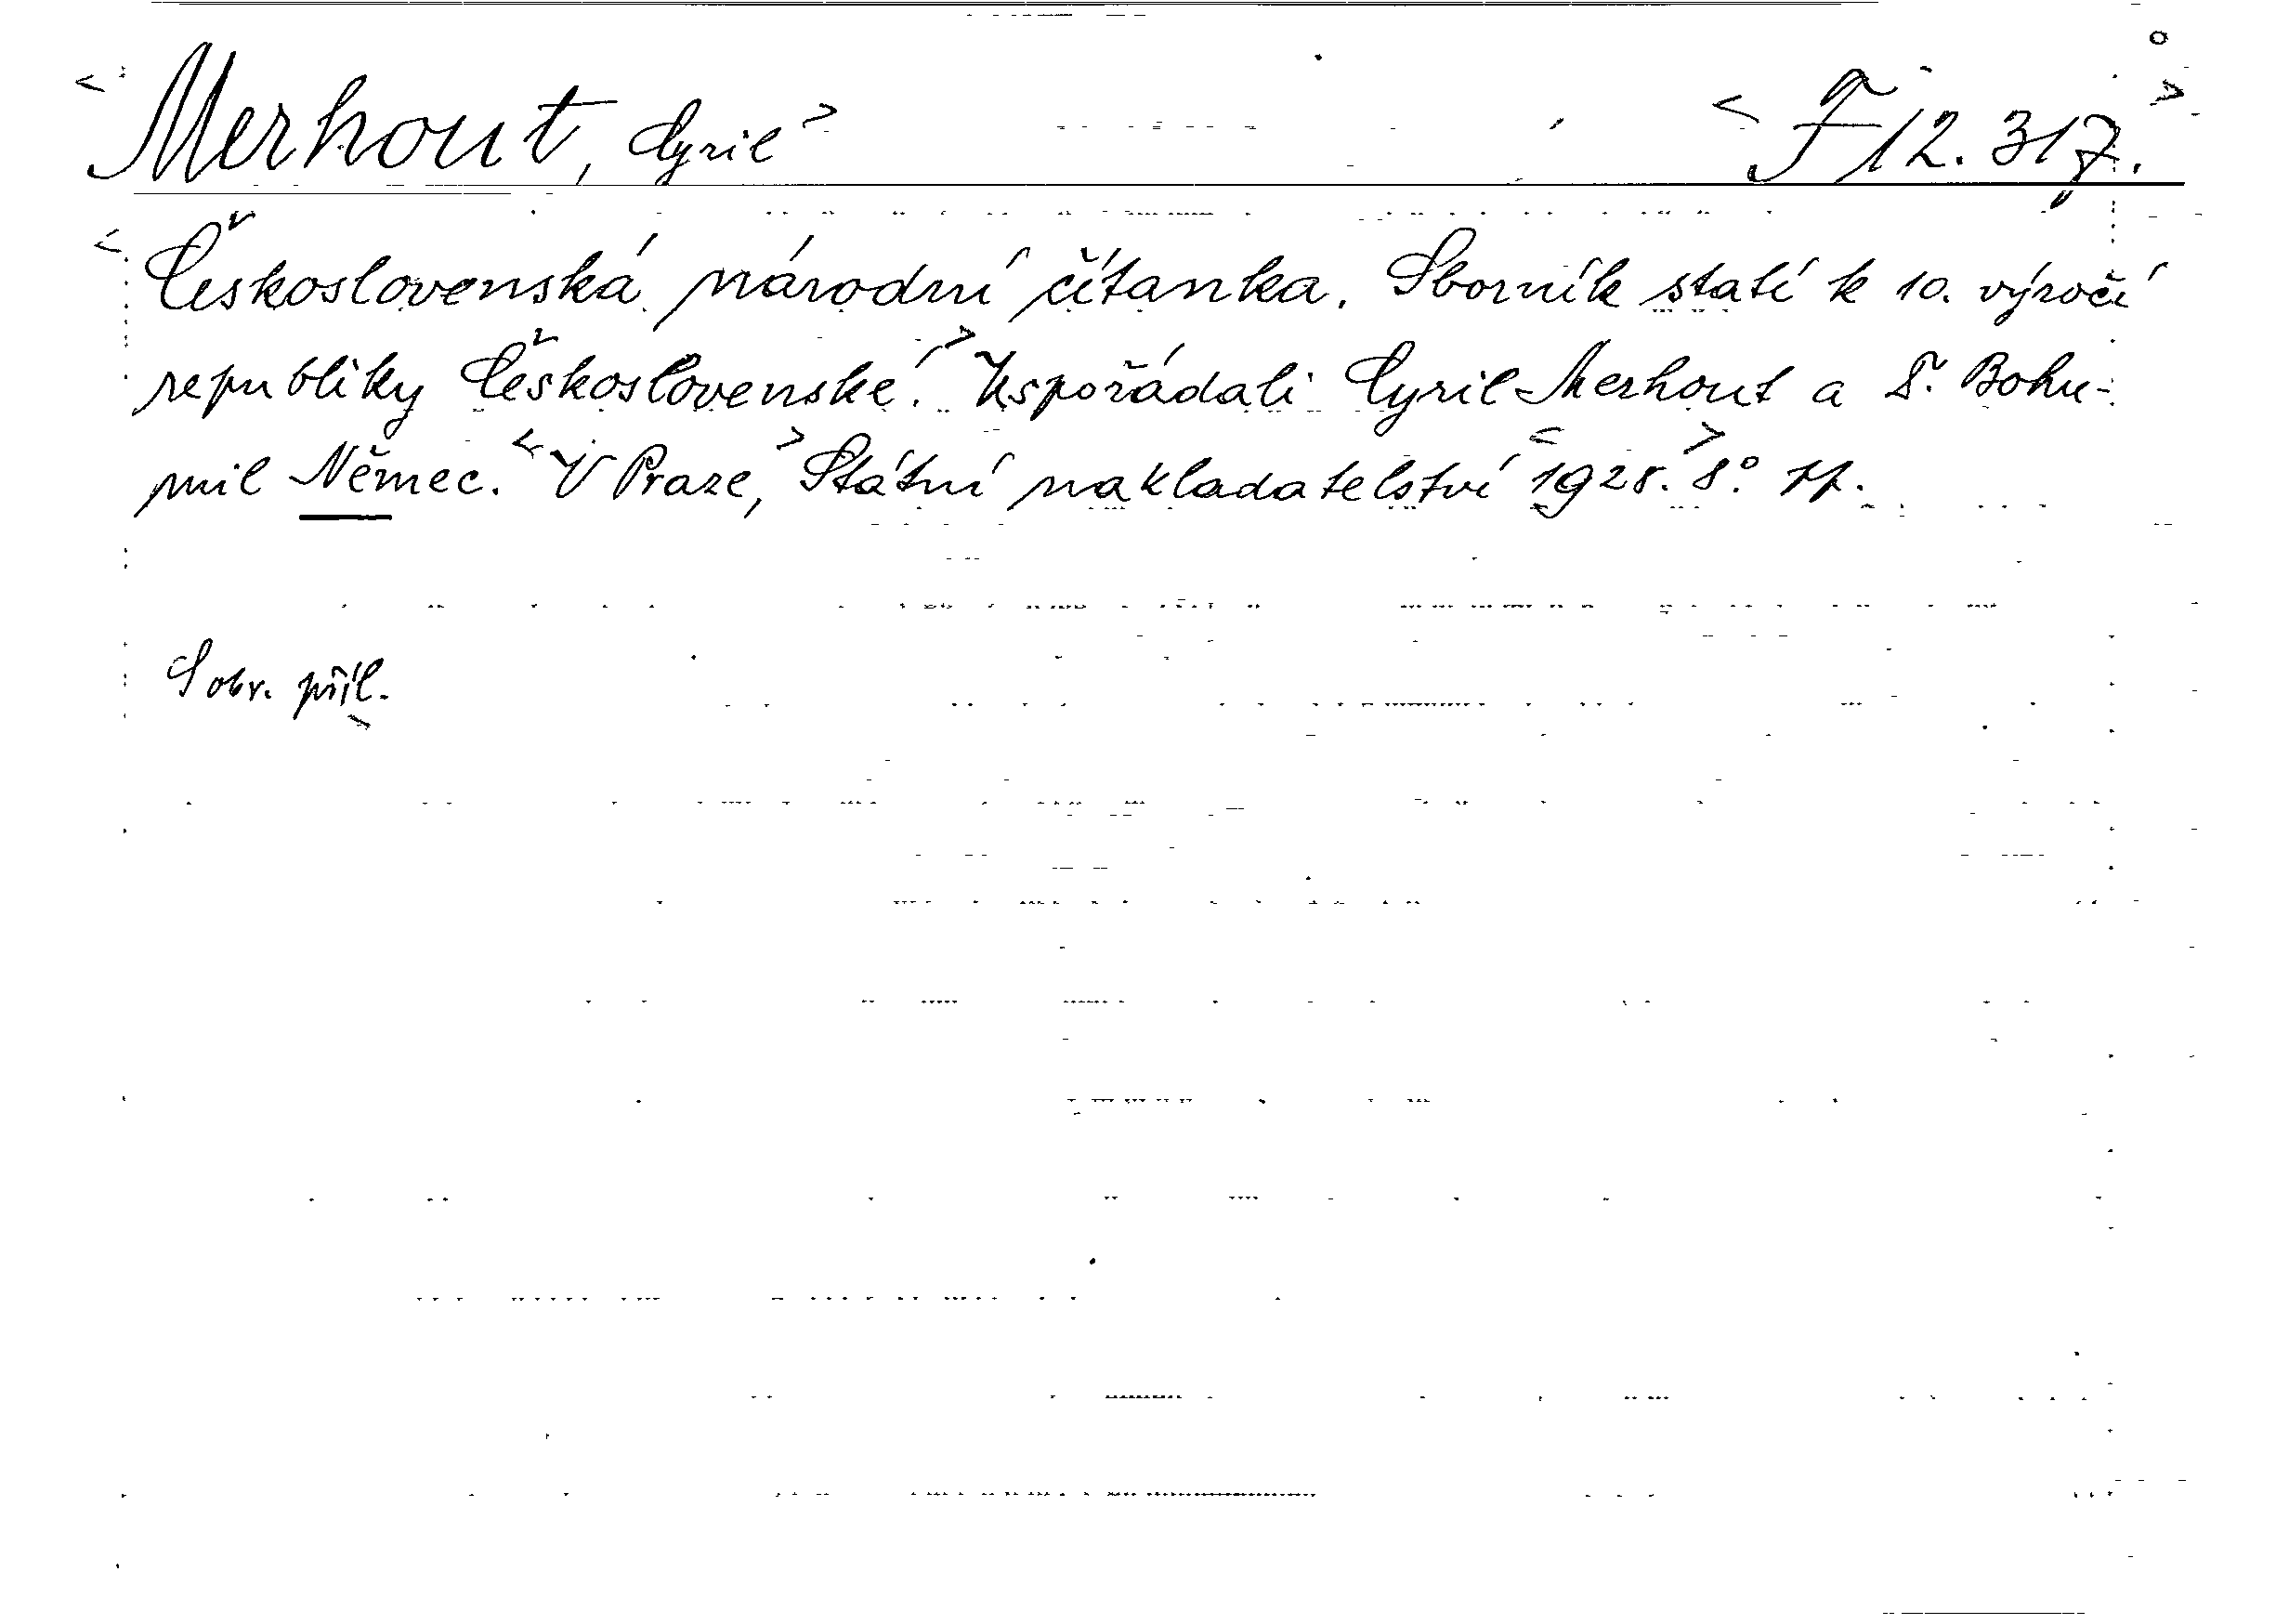 <Merhout, Cyril> <F 12.317.>
<Československá národní čítanka. Sborník statí k 10. výročí
republiky Československé.> Uspořádali Cyril Merhout a Bohu-
mil Němec. <V Praze,> Státní nakladatelství <1928.> 8°.
S obr. příl.